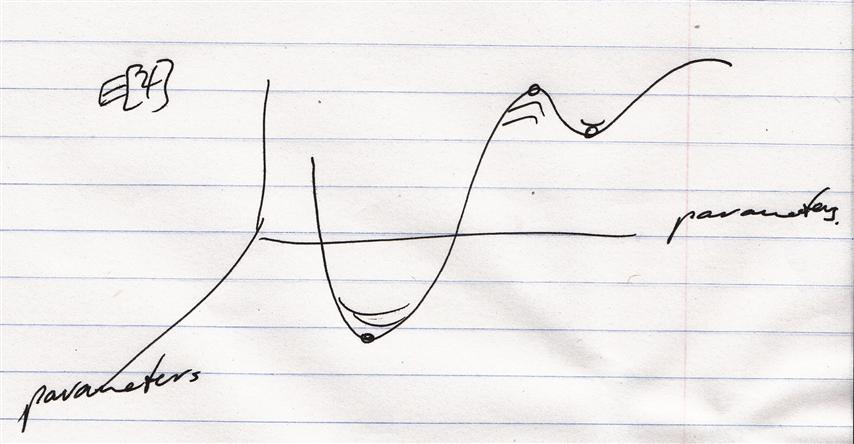 E[Ψ]
parameters.
parameters